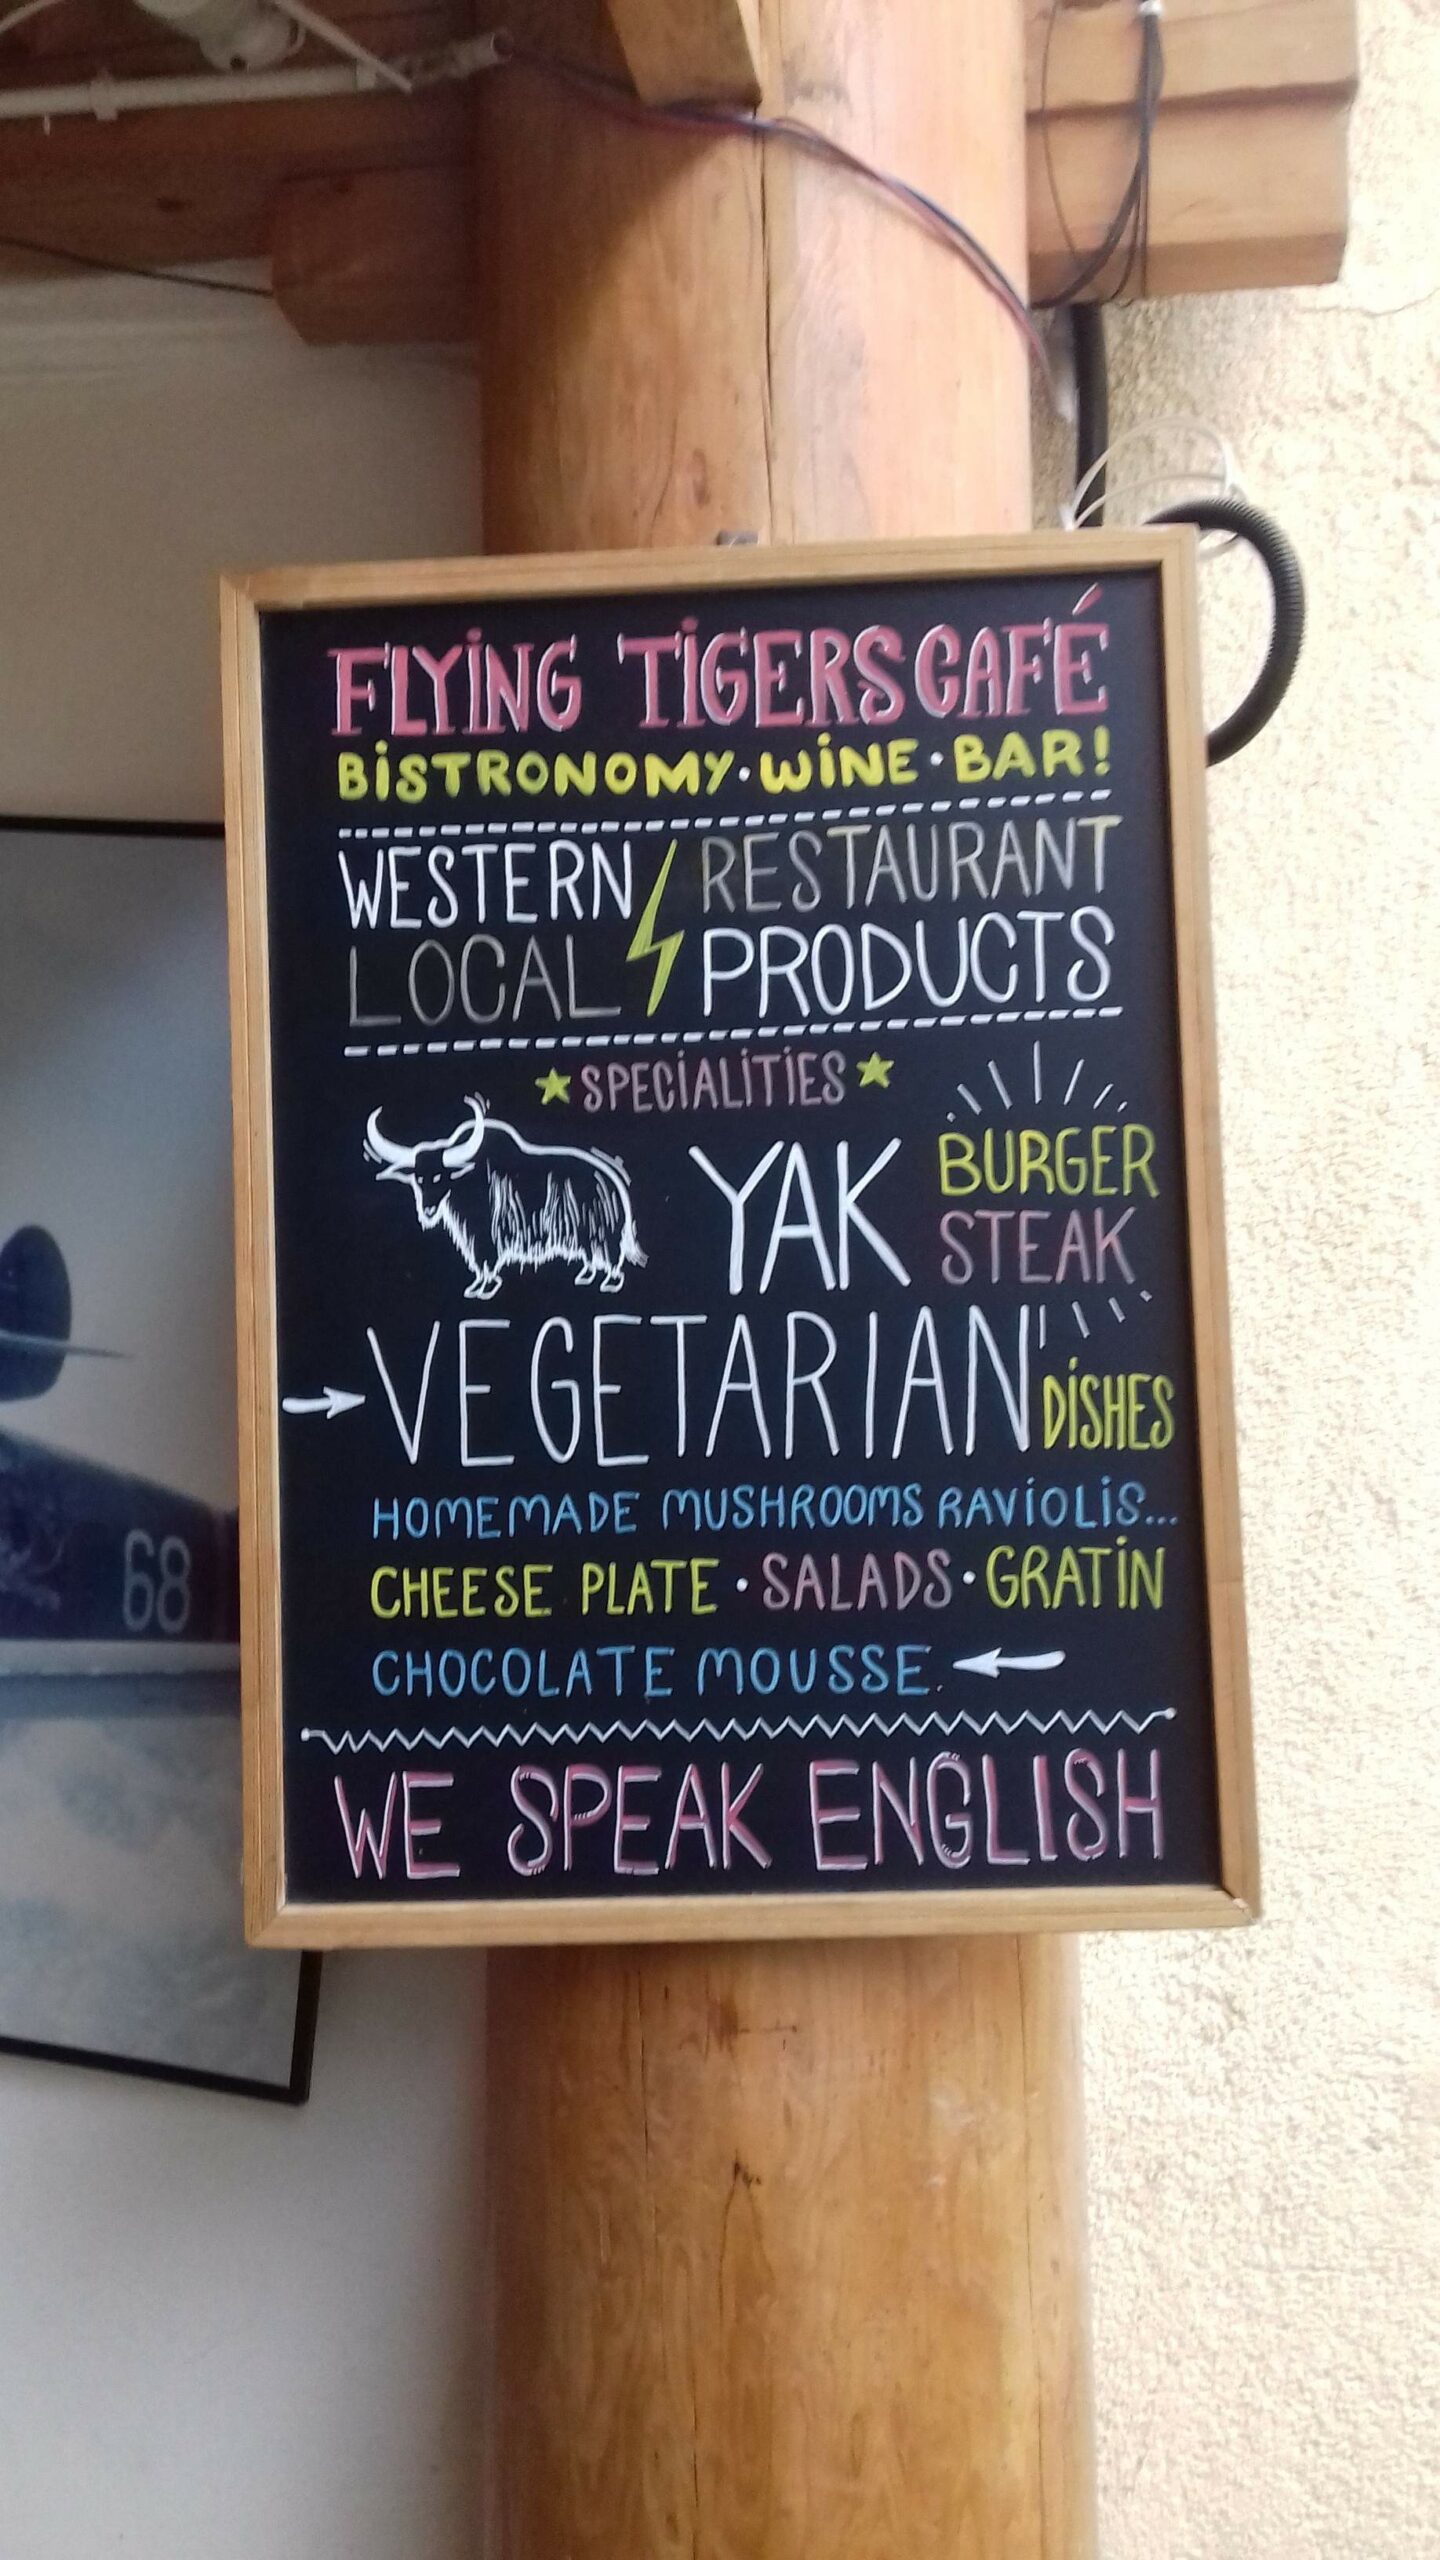 FLYING TIGERS CAFÉ
BISTRONOMY · WINE · BAR!
WESTERN RESTAURANT
LOCAL PRODUCTS
SPECIALITIES
YAK BURGER
STEAK
VEGETARIAN DISHES
HOMEMADE MUSHROOMS RAVIOLIS...
CHEESE PLATE · SALADS · GRATIN
CHOCOLATE MOUSSE
WE SPEAK ENGLISH
68